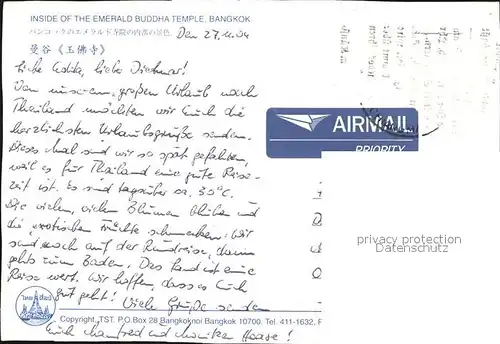 INSIDE OF THE EMERALD BUDDHA TEMPLE, BANGKOK
バンコックのエメラルド寺院の内部の景色 Den 27.11.04
曼谷《玉佛寺》
Liebe Lolita, liebe Dietmar!
Von unserem großen Urlaub nach
Thailand möchten wir Euch die
herzlichsten Urlaubsgrüße senden.
Dieses Mal sind wir so spät gefahren,
weil es für Thailand eine gute Reise-
zeit ist. Es sind tagsüber ca. 35°C.
Die vielen, vielen Blumen blühen und
die exotischen Früchte schmecken. Wir
sind noch auf der Rundreise, dann
gehts zum Baden. Das Land ist eine
Reise wert. Wir hoffen, dass es Euch
gut geht! Viele Grüße senden
Euch Manfred und Monika Haase!
AIRMAIL
PRIORITY
privacy protection
Datenschutz
Copyright, TST. P.O.Box 28 Bangkoknoi Bangkok 10700. Tel. 411-1632, F